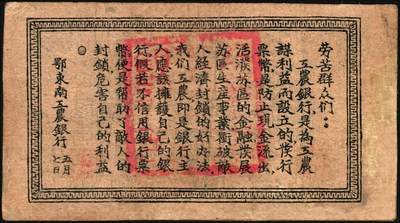 劳苦群众们：
工农银行，是为工农
谋利益而设立的，发行
票币是防止现金流出，
活泼苏区的金融，发展
苏区生产事业，冲破敌
人经济封锁的好办法，
我们工农即是银行主
人，应该拥护自己的银
行，假若不信用银行票
币，便是帮助了敌人的
封锁，危害自己的利益
鄂东南工农银行
五月七日